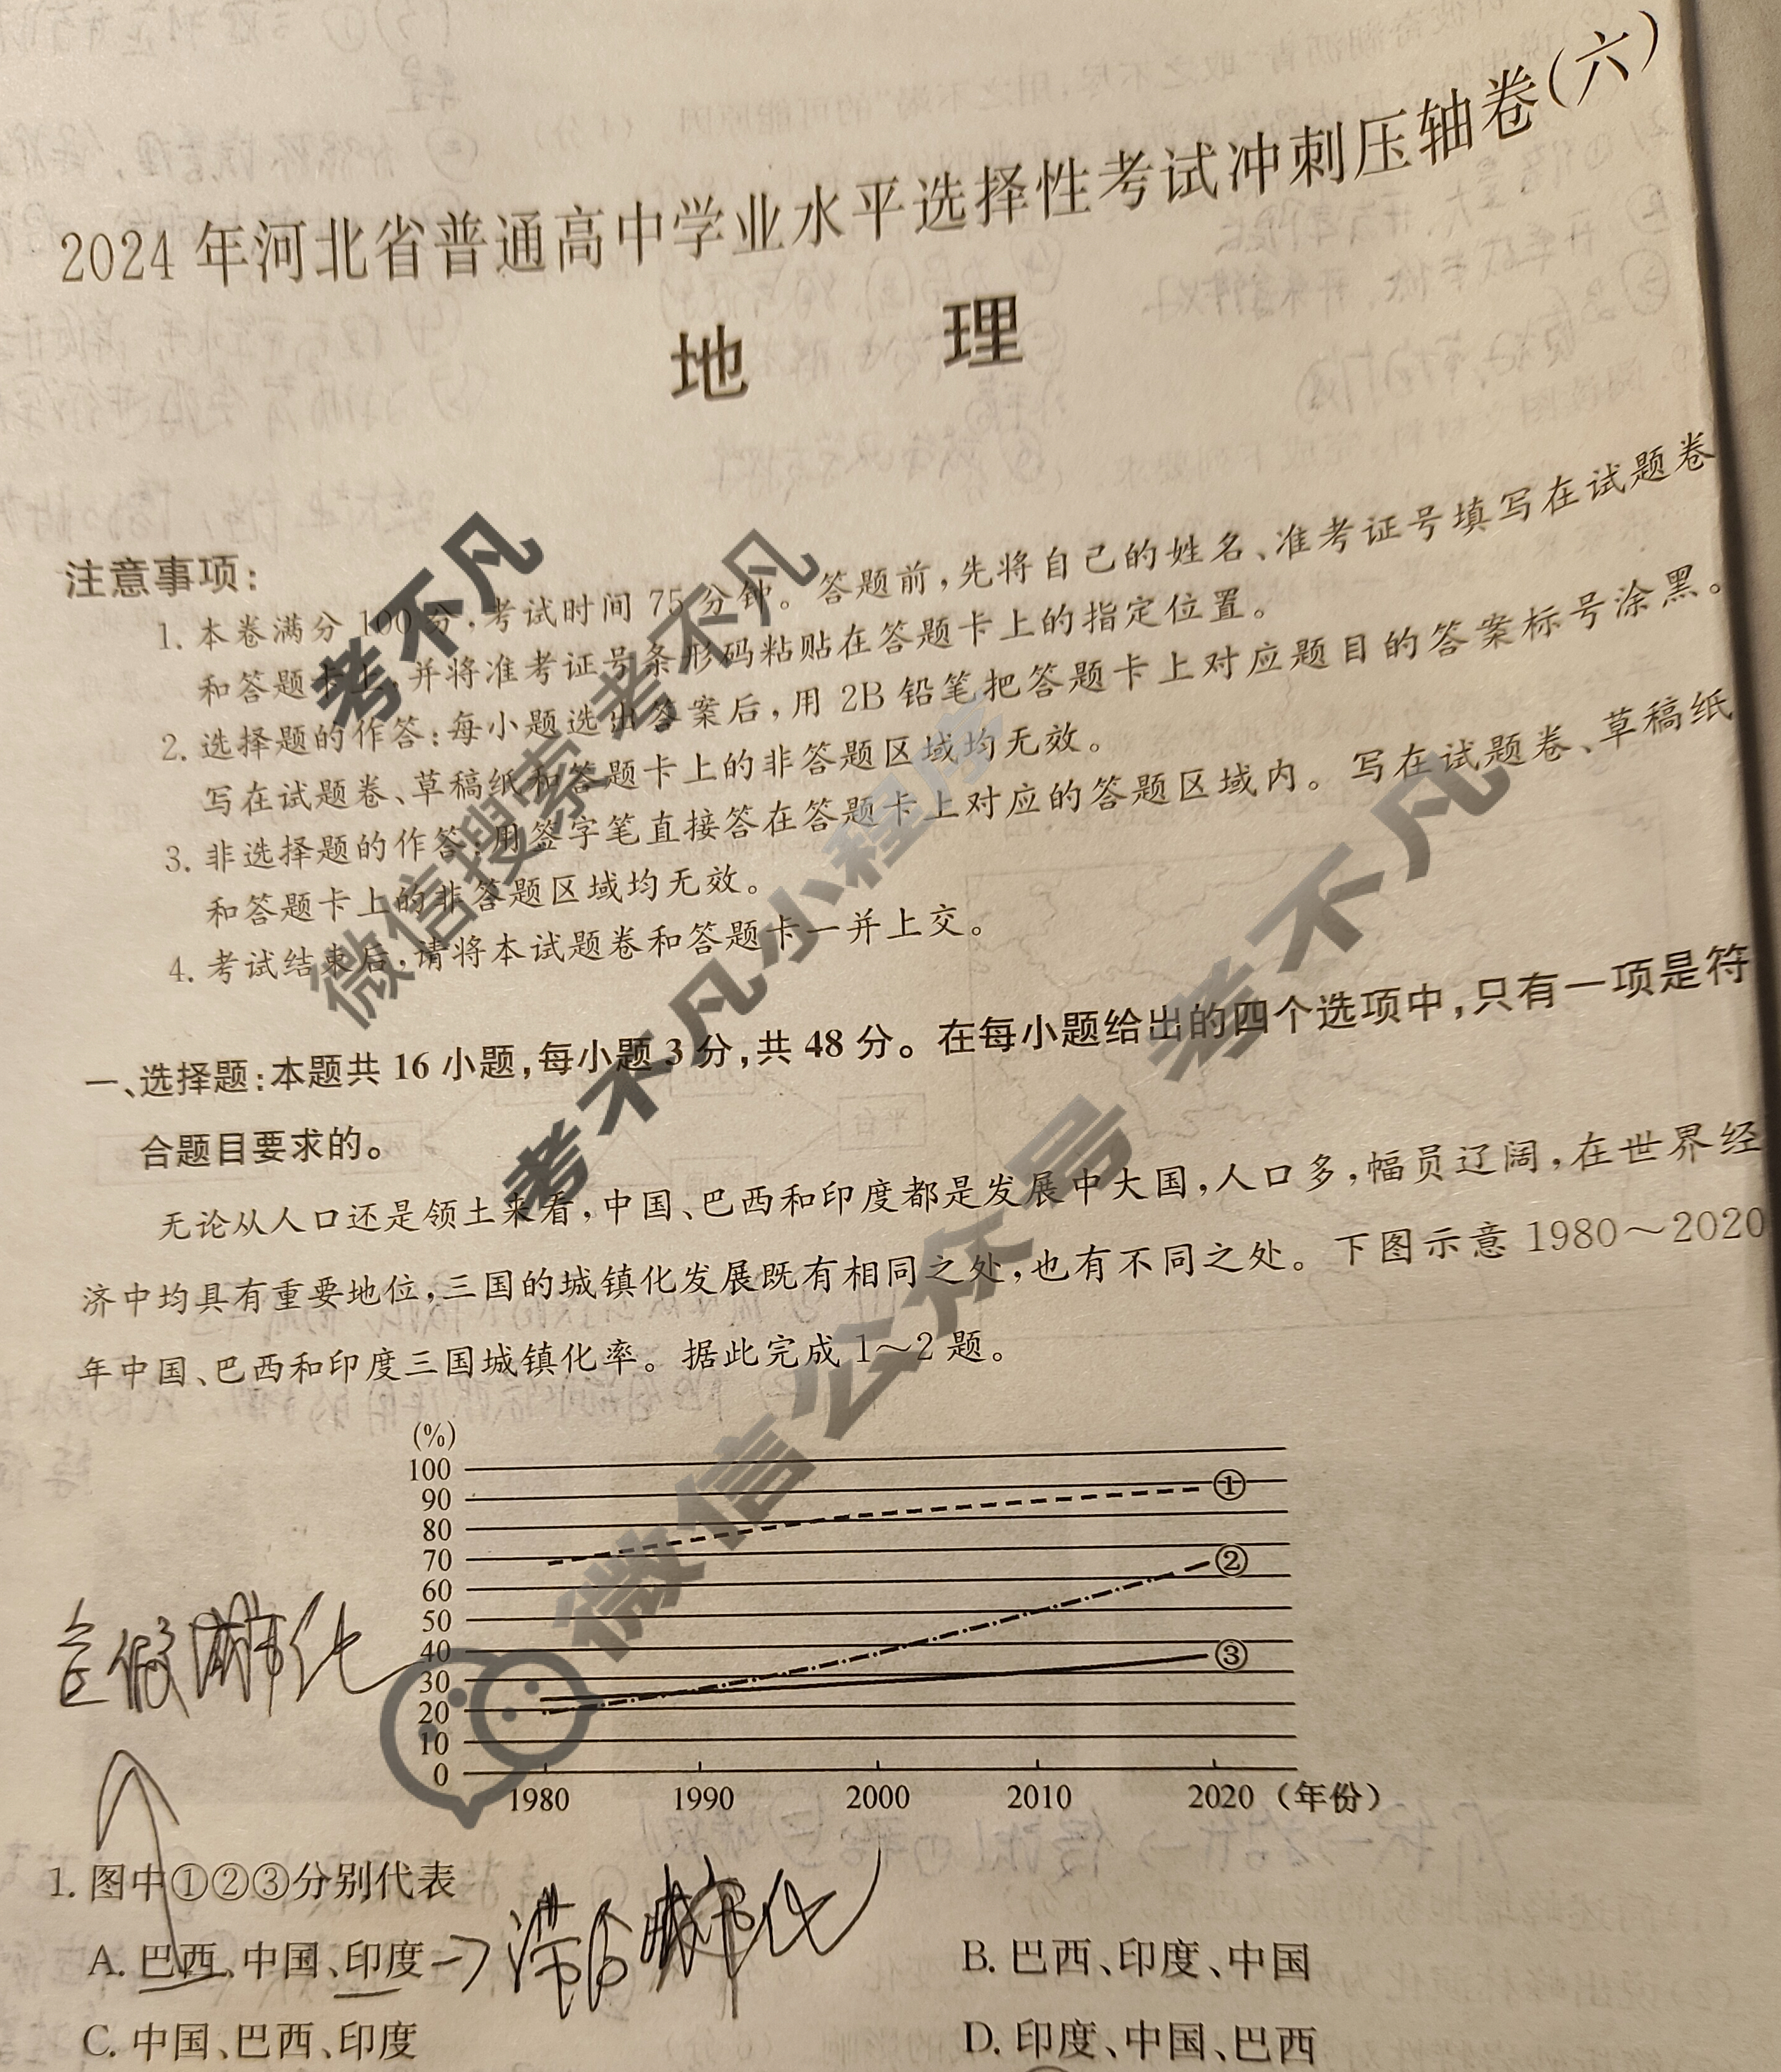 2024年河北省普通高中学业水平选择性考试冲刺压轴卷(六)
地 理
注意事项:
1. 本卷满分100分,考试时间75分钟。答题前,先将自己的姓名、准考证号填写在试题卷
和答题卡上,并将准考证号条形码粘贴在答题卡上的指定位置。
2. 选择题的作答:每小题选出答案后,用2B铅笔把答题卡上对应题目的答案标号涂黑。
写在试题卷、草稿纸和答题卡上的非答题区域均无效。
3. 非选择题的作答:用签字笔直接答在答题卡上对应的答题区域内。写在试题卷、草稿纸
和答题卡上的非答题区域均无效。
4. 考试结束后,请将本试题卷和答题卡一并上交。
考不凡
微信搜索 考不凡
考不凡小程序
微信公众号 考不凡
一、选择题:本题共16小题,每小题3分,共48分。在每小题给出的四个选项中,只有一项是符
合题目要求的。
无论从人口还是领土来看,中国、巴西和印度都是发展中大国,人口多,幅员辽阔,在世界经
济中均具有重要地位,三国的城镇化发展既有相同之处,也有不同之处。下图示意1980~2020
年中国、巴西和印度三国城镇化率。据此完成1~2题。
(%)
100
90
80
70
60
50
40
30
20
10
0
①
②
③
1980 1990 2000 2010 2020 (年份)
1. 图中①②③分别代表
A. 巴西、中国、印度
滞后城市化
B. 巴西、印度、中国
C. 中国、巴西、印度
D. 印度、中国、巴西